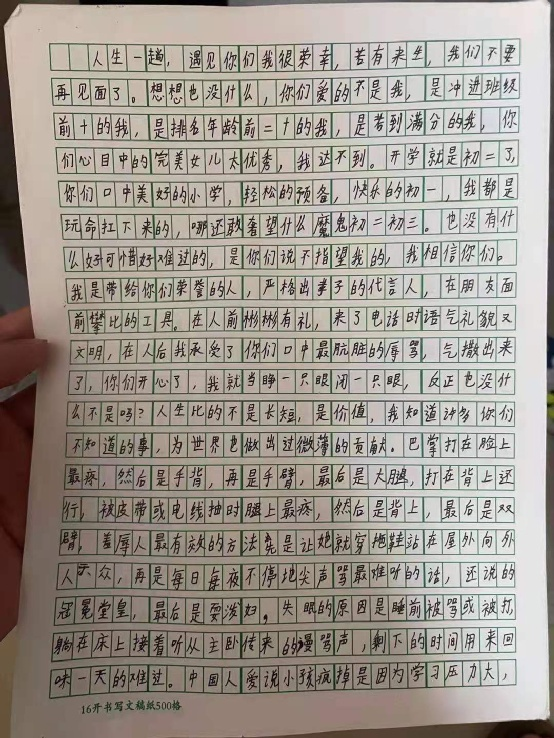 人生一趟，遇见你们我很荣幸，若有来生，我们不要
再见面了。想想也没什么，你们爱的不是我，是冲进班级
前十的我，是排名年龄前二十的我，是考到满分的我，你
们心目中的完美女儿太优秀，我达不到。开学就是初二了，
你们口中美好的小学，轻松的预备，快乐的初一，我都是
玩命扛下来的，哪还敢奢望什么魔鬼初二初三。也没有什
么好可惜好难过的，是你们说不指望我的，我相信你们。
我是带给你们荣誉的人，严格出孝子的代言人，在朋友面
前攀比的工具。在人前彬彬有礼，来了电话时语气礼貌又
文明，在人后我承受了你们口中最肮脏的辱骂，气撒出来
了，你们开心了，我就当睁一只眼闭一只眼，反正也没什
么不是吗？人生比的不是长短，是价值，我知道许多你们
不知道的事，为世界也做出过微薄的贡献。巴掌打在脸上
最疼，然后是手背，再是手臂，最后是大腿，打在背上还
行，被皮带或电线抽时腿上最疼，然后是背上，最后是双
臂，羞辱人最有效的方法先是让她就穿拖鞋站在屋外向外
人示众，再是每日每夜不停地尖声骂最难听的话，还说的
冠冕堂皇，最后是耍泼妇。失眠的原因是睡前被骂或被打，
躺在床上接着听从主卧传来的谩骂声，剩下的时间用来回
味一天的难过。中国人爱说小孩疯掉是因为学习压力大，
16开书写文稿纸500格